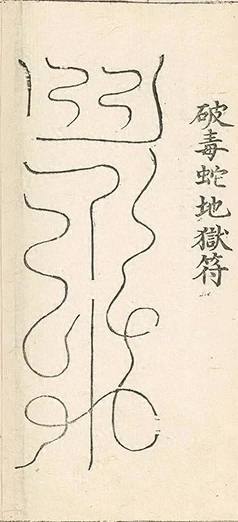 破毒蛇地獄符